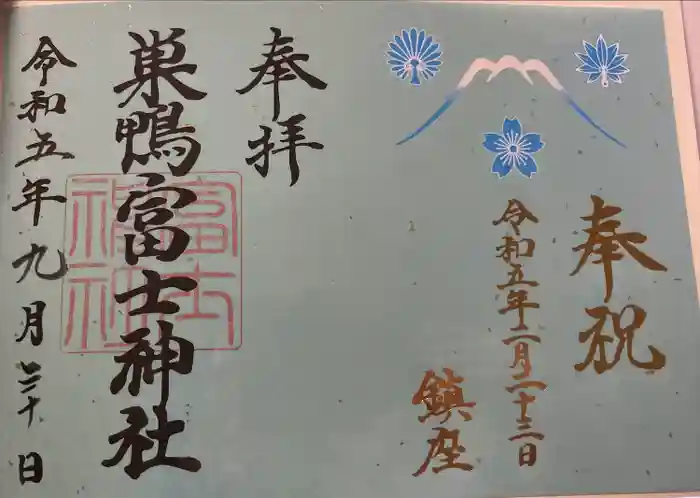 奉祝
令和五年二月二十三日
鎮座
奉拝
巣鴨富士神社
富士
神社
令和五年九月三十日